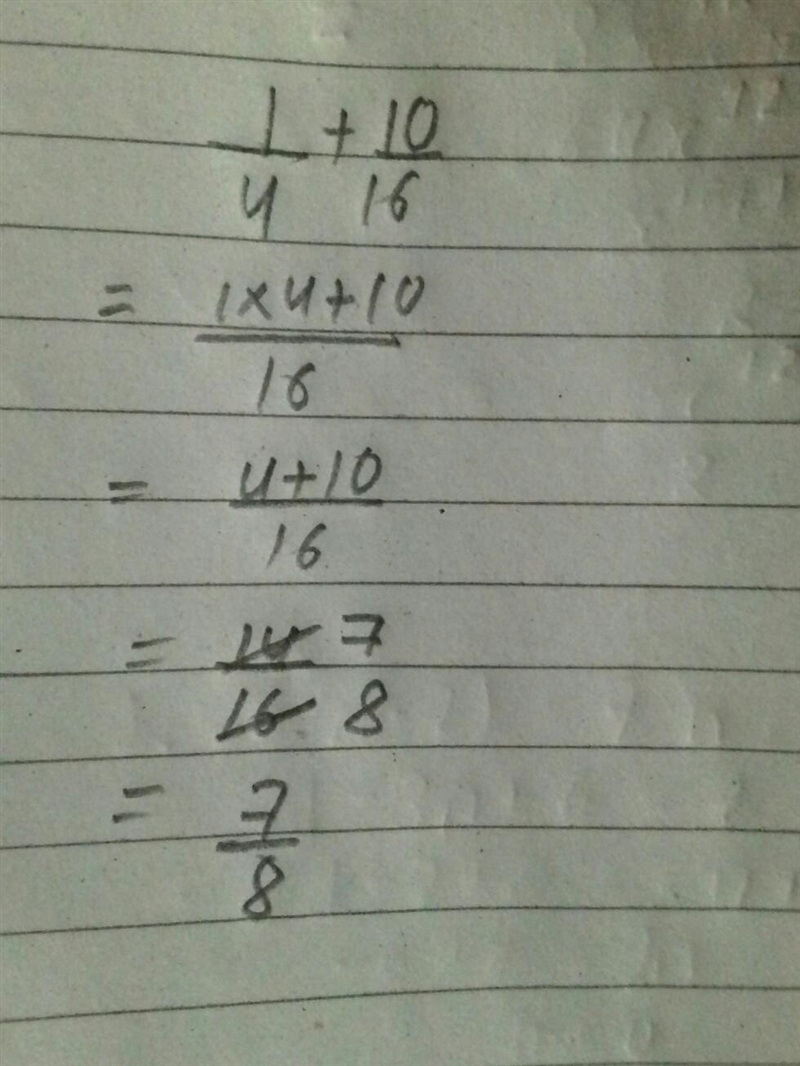 1/4 + 10/16
= 1×4+10/16
= 4+10/16
= 14/16 7/8
= 7/8